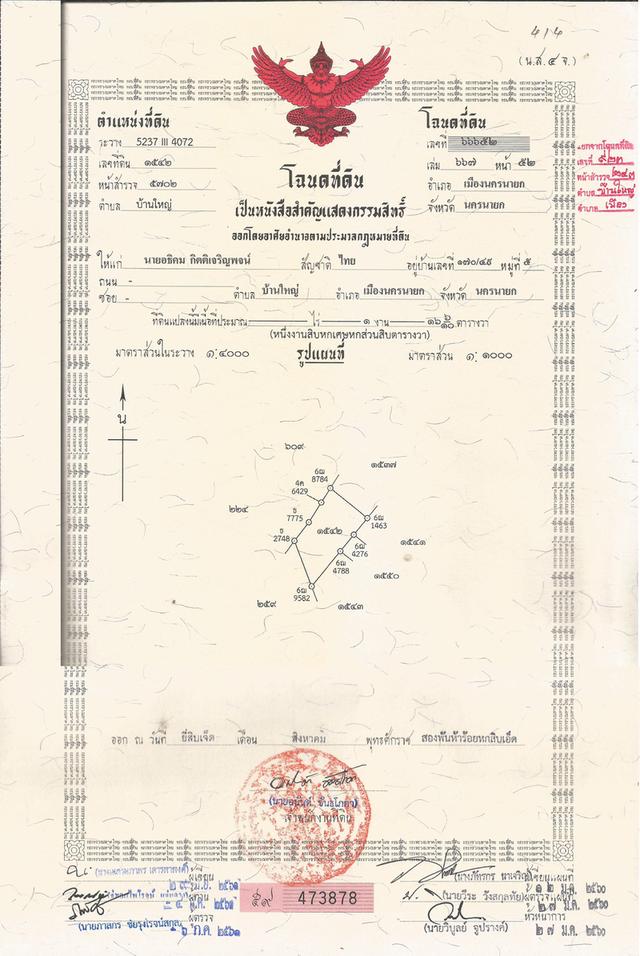 414
(น.ส.๔ จ.)
ตำแหน่งที่ดิน
ระวาง 5237 III 4072
เลขที่ดิน ๑๕๔๒
หน้าสำรวจ ๕๗๐๒
ตำบล บ้านใหญ่
โฉนดที่ดิน
เลขที่ ๖๖๖๕๒
เล่ม ๖๖๗ หน้า ๕๒
อำเภอ เมืองนครนายก
จังหวัด นครนายก
แยกจากโฉนดที่ดิน
เลขที่ ๙๒๓
หน้าสำรวจ ๒๔๓
ตำบล บ้านใหญ่
อำเภอ เมือง
โฉนดที่ดิน
เป็นหนังสือสำคัญแสดงกรรมสิทธิ์
ออกโดยอาศัยอำนาจตามประมวลกฎหมายที่ดิน
ให้แก่ นายอธิคม กิตติเจริญพจน์ สัญชาติ ไทย อยู่บ้านเลขที่ ๑๗๐/๔๙ หมู่ที่ ๕
ถนน -
ซอย - ตำบล บ้านใหญ่ อำเภอ เมืองนครนายก จังหวัด นครนายก
ที่ดินแปลงนี้มีเนื้อที่ประมาณ - ไร่ ๑ งาน ๑๖ ๖/๑๐ ตารางวา
(หนึ่งงานสิบหกเศษหกส่วนสิบตารางวา)
มาตราส่วนในระวาง ๑:๔๐๐๐ รูปแผนที่ มาตราส่วน ๑: ๑๐๐๐
น
๖๐๙
๑๕๓๗
6ฒ
8784
4ค
6429
๒๒๔
ธ
7775
6ฒ
1463
ธ
2748
๑๕๔๒
๑๕๔๑
6ฒ
4276
6ฒ
4788
๑๕๕๐
6ฒ
9582
๒๕๙
๑๕๔๓
ออก ณ วันที่ ยี่สิบเจ็ด เดือน สิงหาคม พุทธศักราช สองพันห้าร้อยหกสิบเอ็ด
เจ้าพนักงานที่ดิน
ผู้เขียน
ผู้ตรวจ
๕๙ 473878
(นายวีระ วังสกุลทัย)
๒๗ ม.ค. ๒๕๖๐